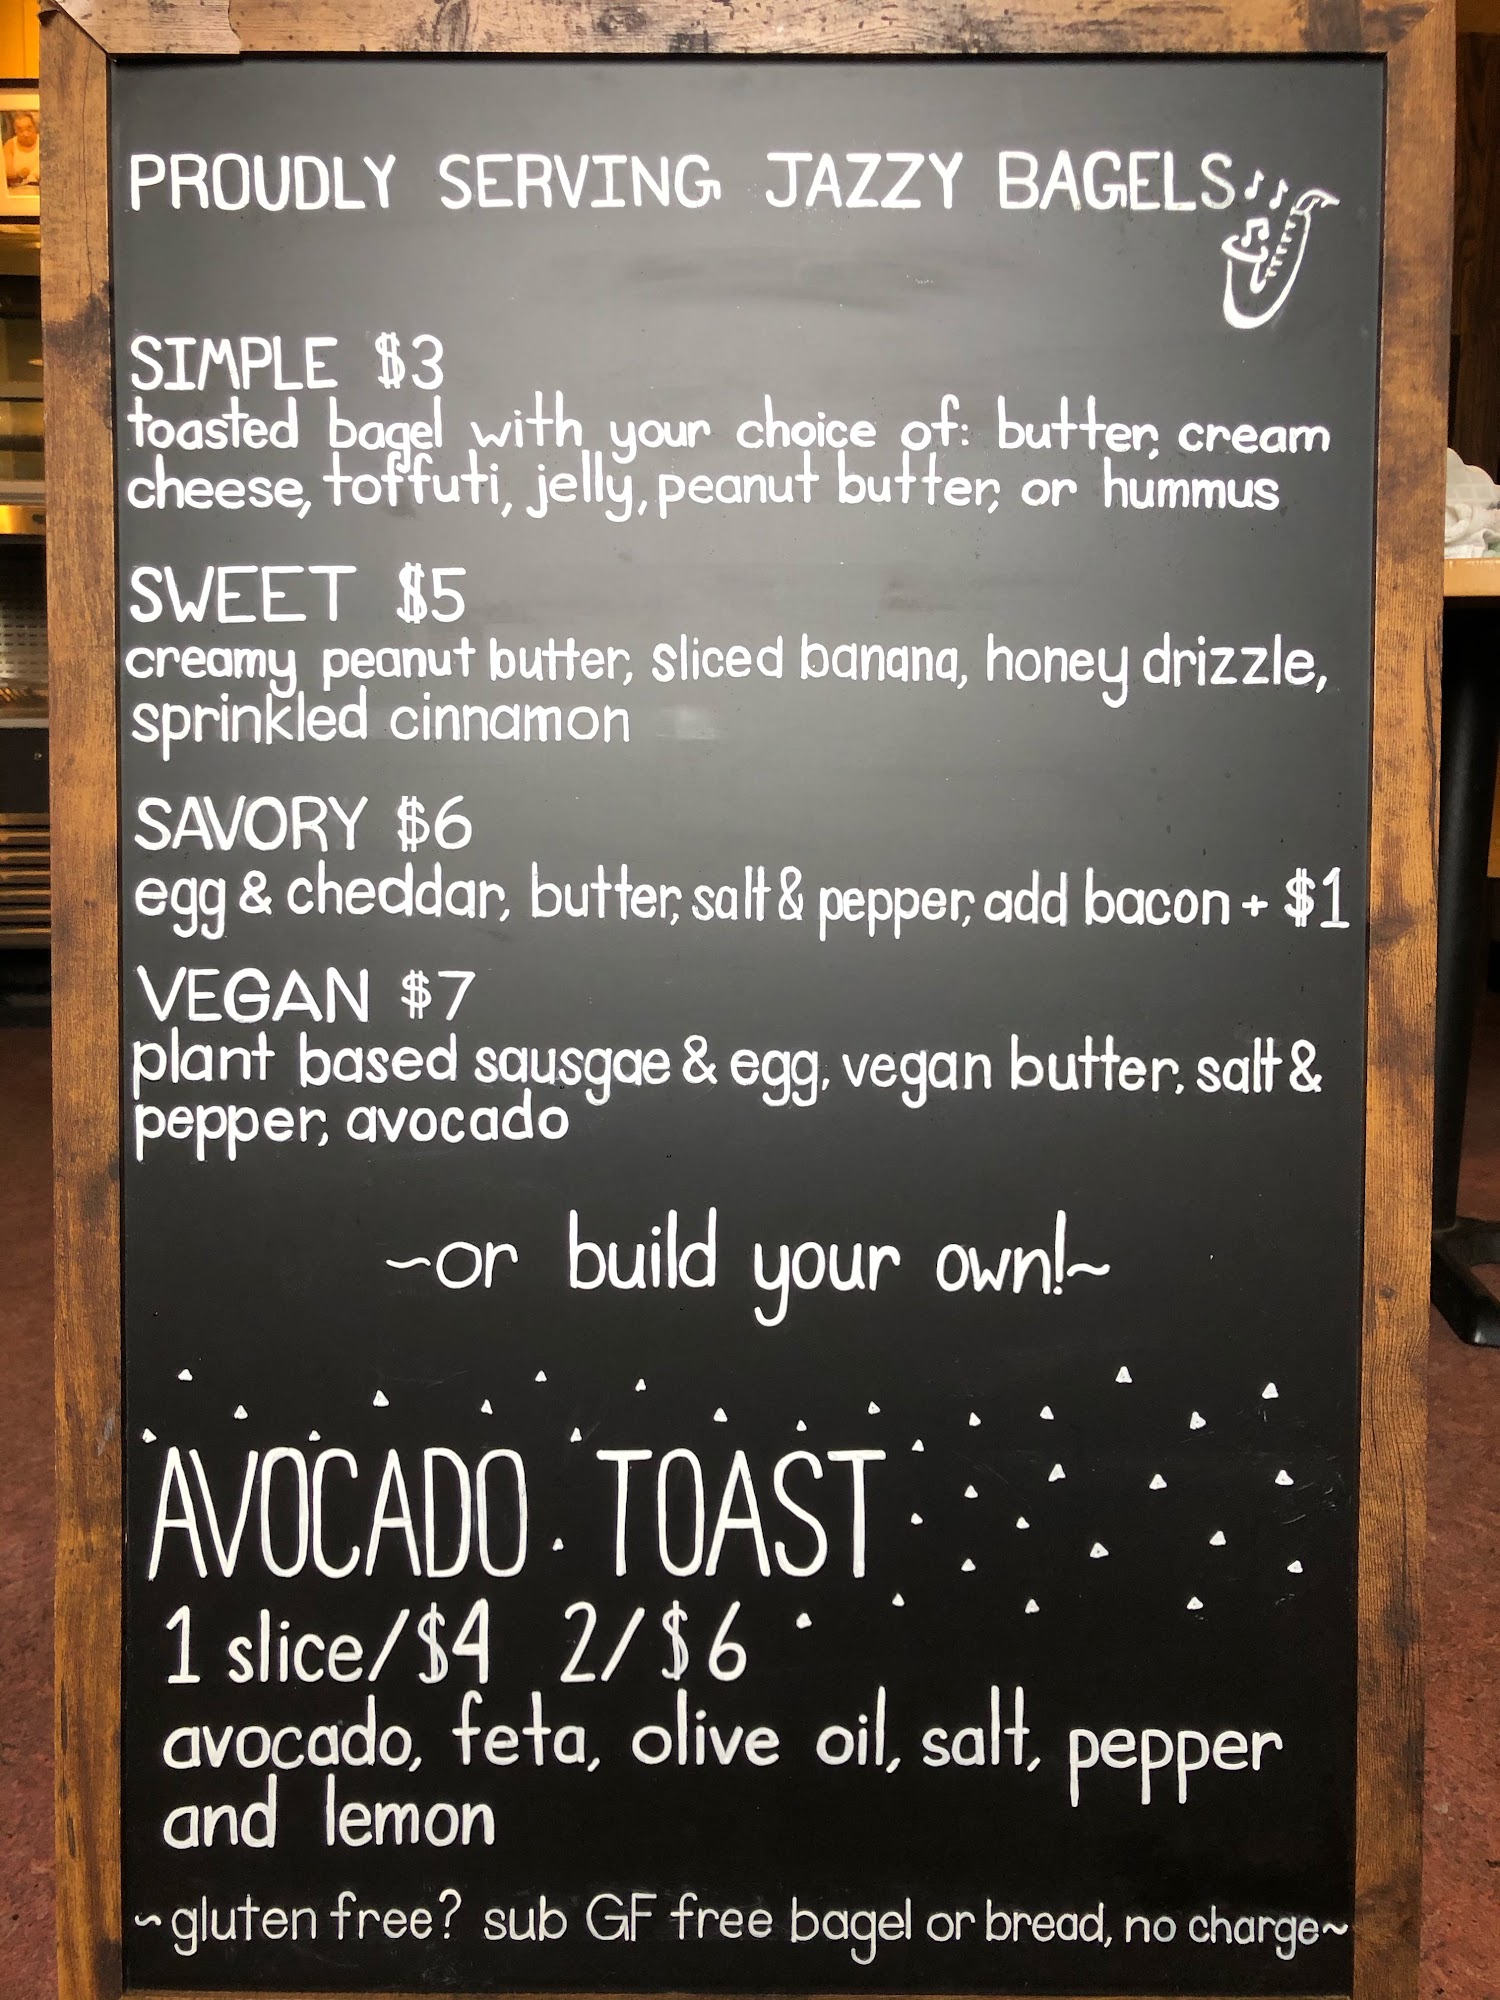 PROUDLY SERVING JAZZY BAGELS
SIMPLE $3
toasted bagel with your choice of: butter, cream
cheese, toffuti, jelly, peanut butter, or hummus
SWEET $5
creamy peanut butter, sliced banana, honey drizzle,
sprinkled cinnamon
SAVORY $6
egg & cheddar, butter, salt & pepper, add bacon + $1
VEGAN $7
plant based sausgae & egg, vegan butter, salt &
pepper, avocado
~or build your own!~
AVOCADO TOAST
1 slice/$4 2/$6
avocado, feta, olive oil, salt, pepper
and lemon
~gluten free? sub GF free bagel or bread, no charge~